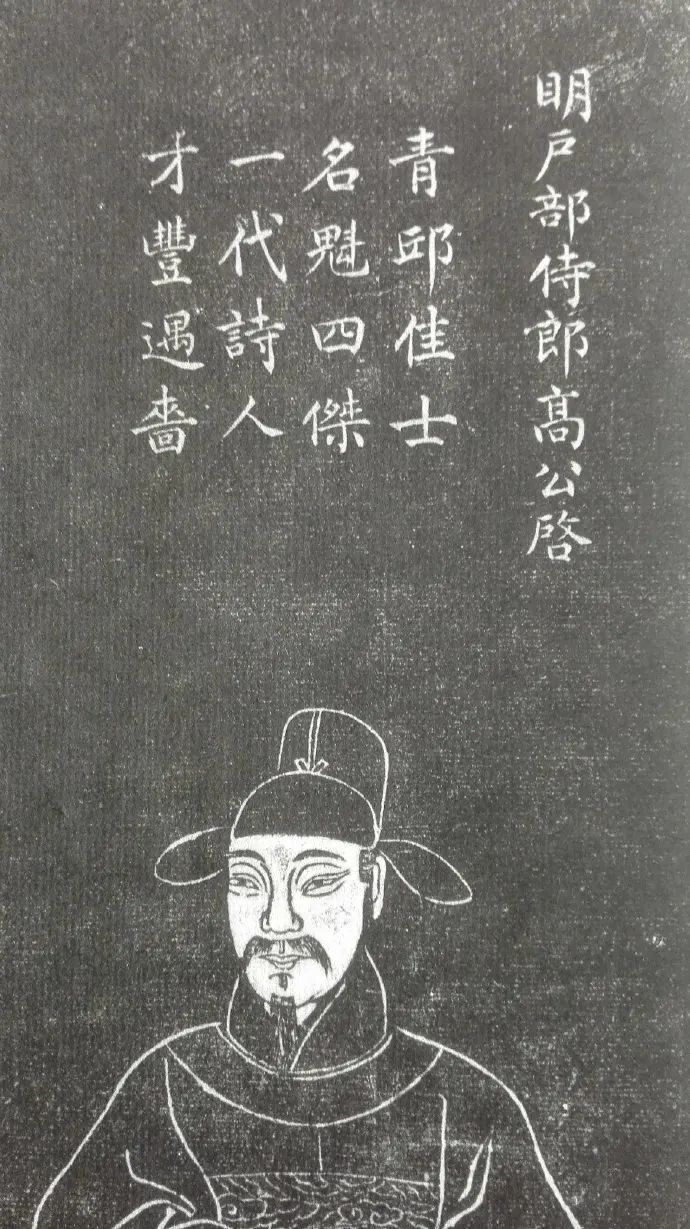 明戶部侍郎高公啓
青邱佳士
名魁四傑
一代詩人
才豐遇嗇